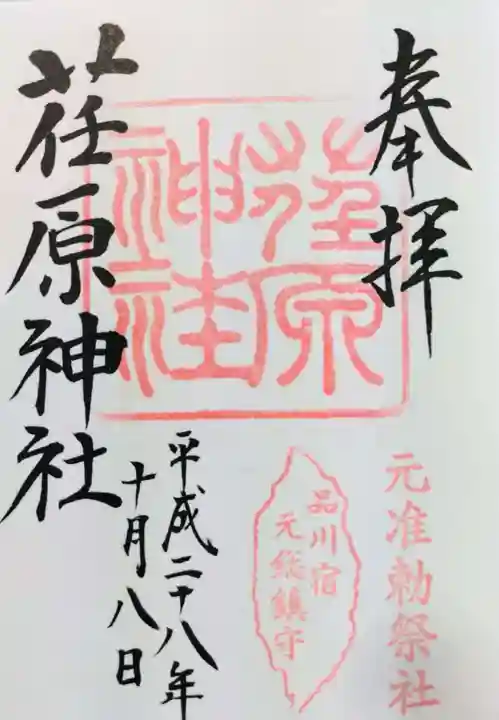 奉拝
元准勅祭社
荏原
神社
品川宿
元総鎮守
荏原神社
平成二十八年
十月八日